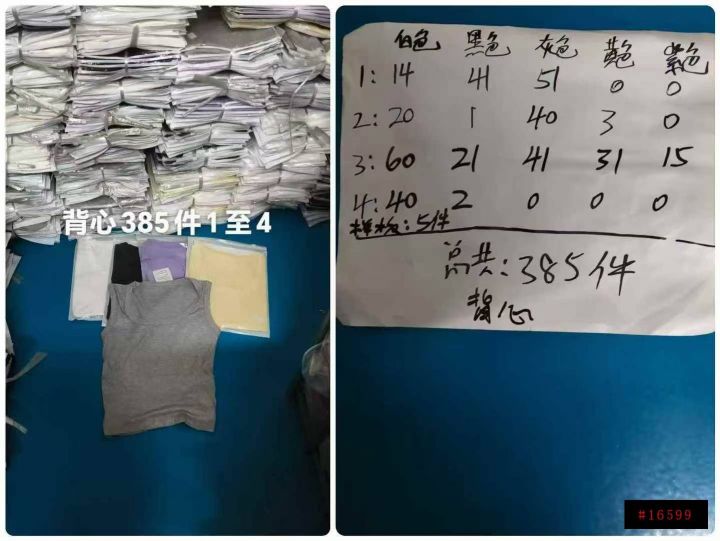 背心385件1至4
白色 黑色 灰色 黄色 紫色
1: 14 41 51 0 0
2: 20 1 40 3 0
3: 60 21 41 31 15
4: 40 2 0 0 0
样板: 5件
总共: 385件
背心
#16599